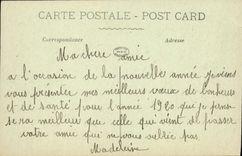 CARTE POSTALE - POST CARD
Correspondance Adresse
Ma chere amie
a l'occasion de la nouvelle année je viens
vous présenter mes meilleurs vœux de bonheur
et de santé pour l'année 1920 que je pense
sera meilleur que celle qui vient de passer
votre amie qui ne vous oublie pas
Madeleine